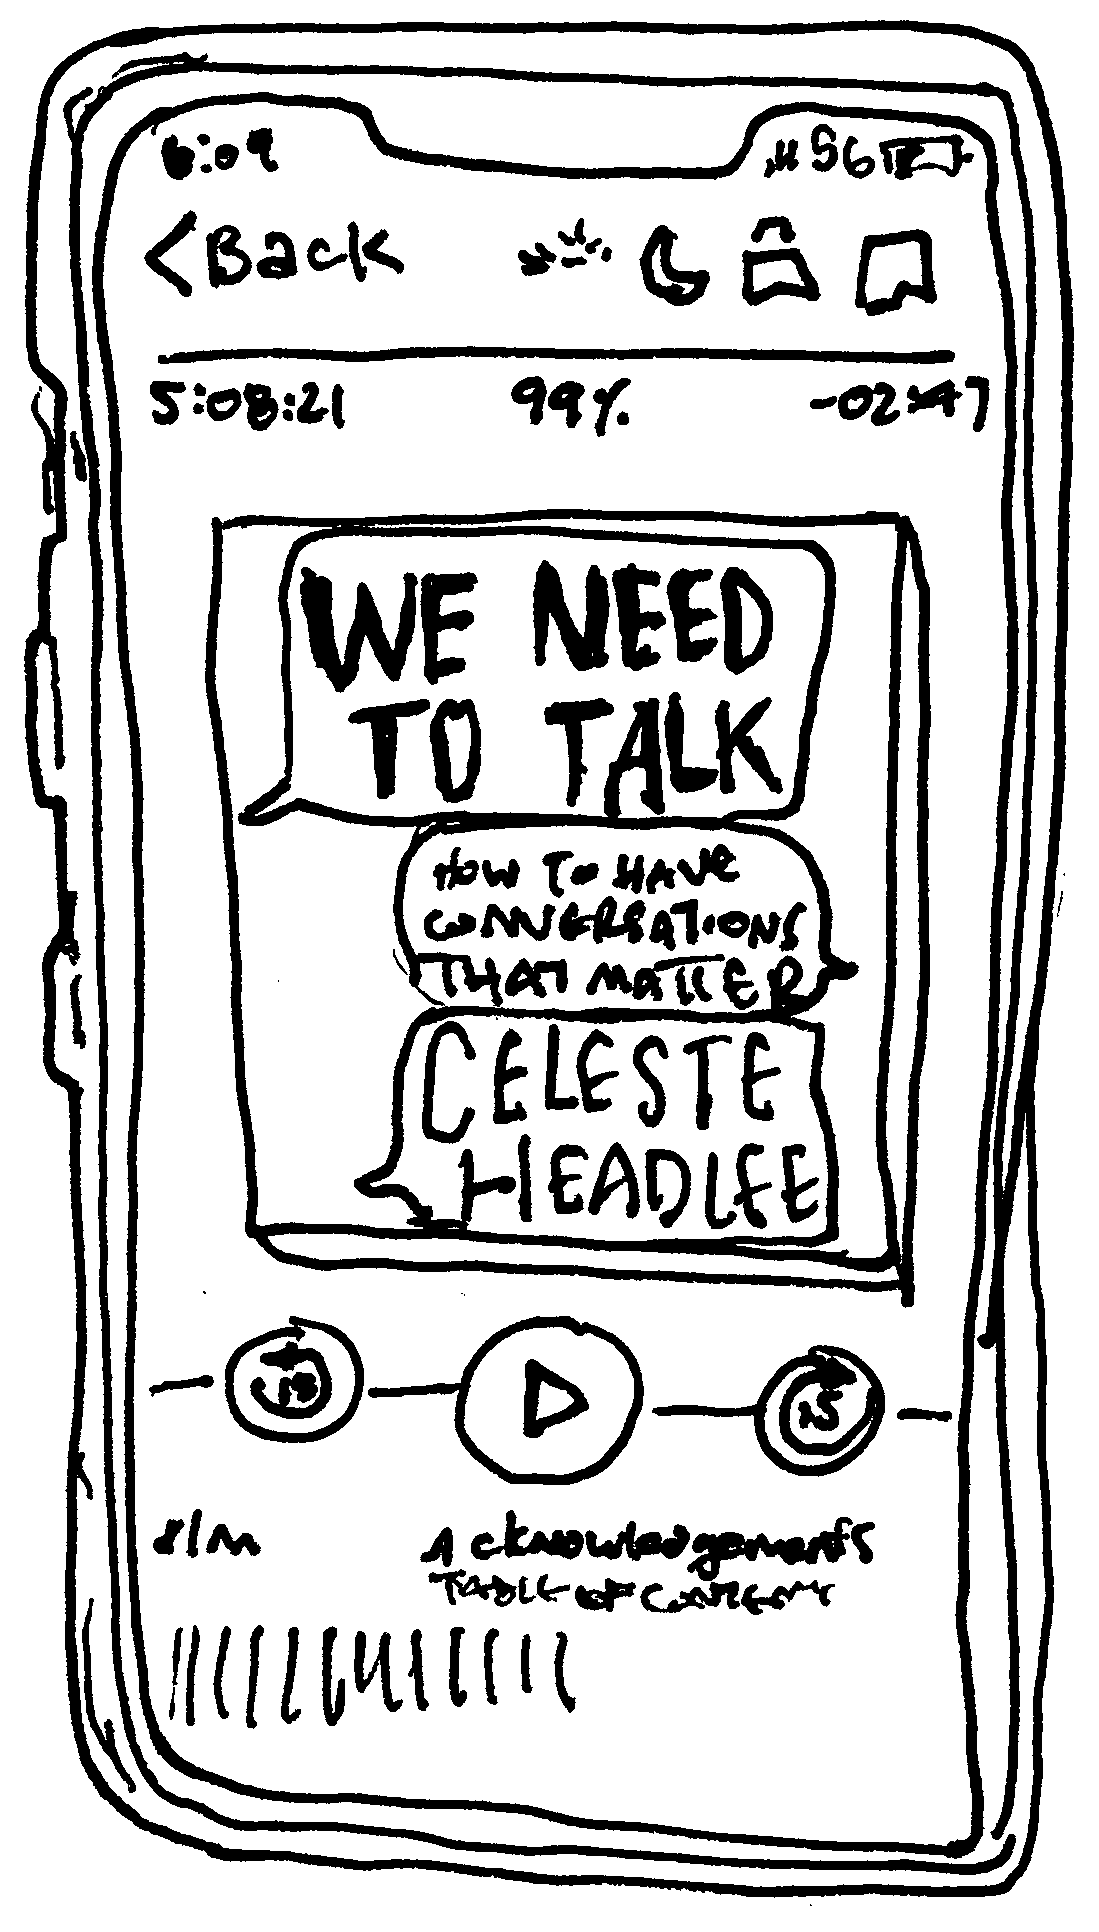 6:09 5G
<Back
5:08:21 99% -02:47
WE NEED
TO TALK
HOW TO HAVE
CONVERSATIONS
THAT MATTER
CELESTE
HEADLEE
15 15
Acknowledgements
TABLE OF CONTENT